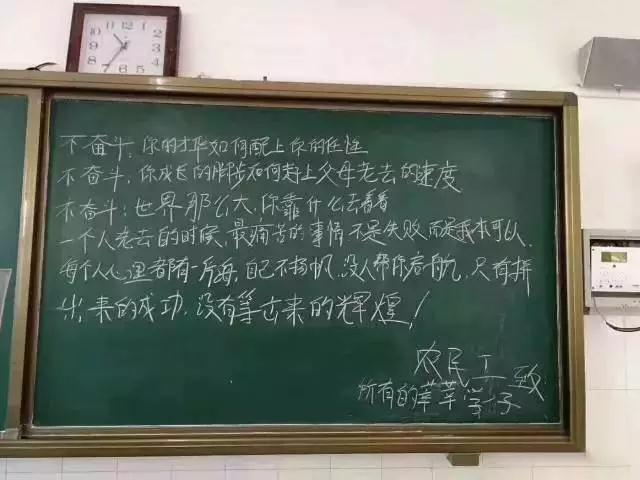 不奋斗，你的才华如何配上你的任性
不奋斗，你成长的脚步如何赶上父母老去的速度
不奋斗：世界那么大，你靠什么去看看
一个人老去的时候，最痛苦的事情不是失败而是我本可以，
每个人心里都有一片海，自己不扬帆，没人帮你启航，只有拼
出来的成功，没有等出来的辉煌！
农民工致
所有的莘莘学子